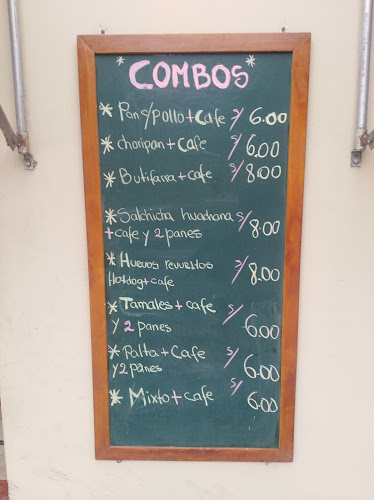 * COMBOS *
* Pan s/pollo + Cafe s/ 6.00
* choripan + cafe s/ 6.00
* Butifarra + cafe s/ 8.00
* Salchicha huachana
+ cafe y 2 panes s/ 8.00
* Huevos revueltos
Hotdog + cafe s/ 8.00
* Tamales + cafe s/
y 2 panes 6.00
* Palta + Cafe s/
y 2 panes 6.00
* Mixto + cafe s/ 6.00